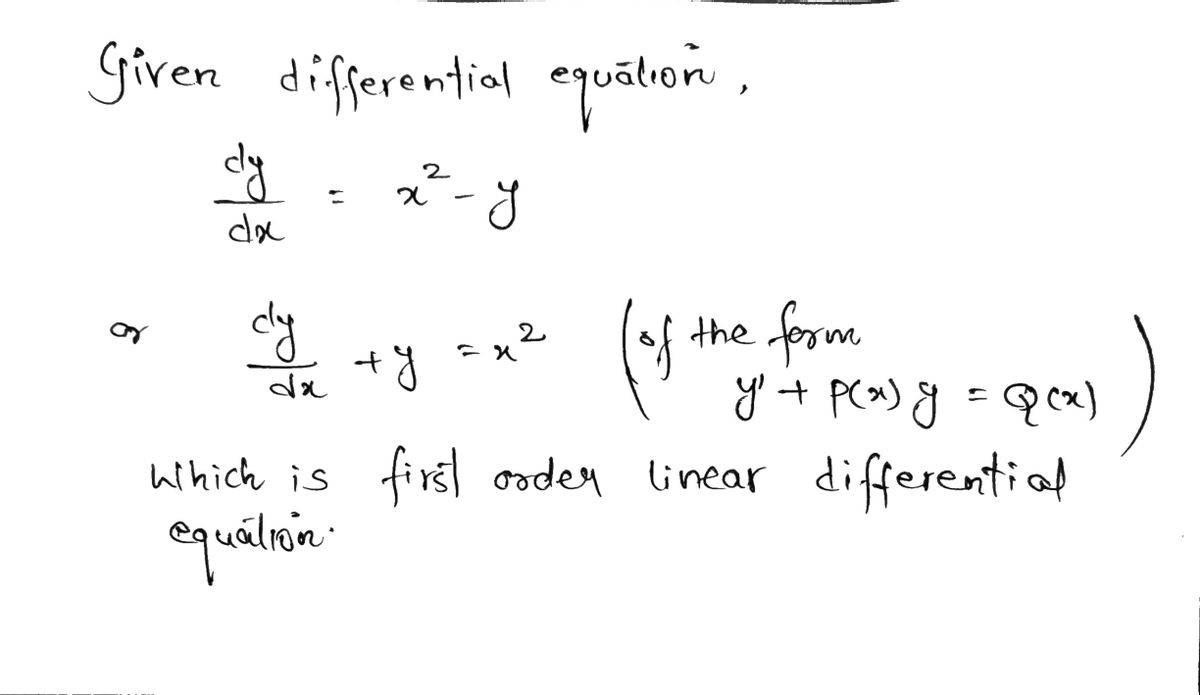 Given differential equation,
dy/dx = x² - y
or dy/dx + y = x² (of the form
y' + P(x) y = Q(x))
Which is first order linear differential
equation.